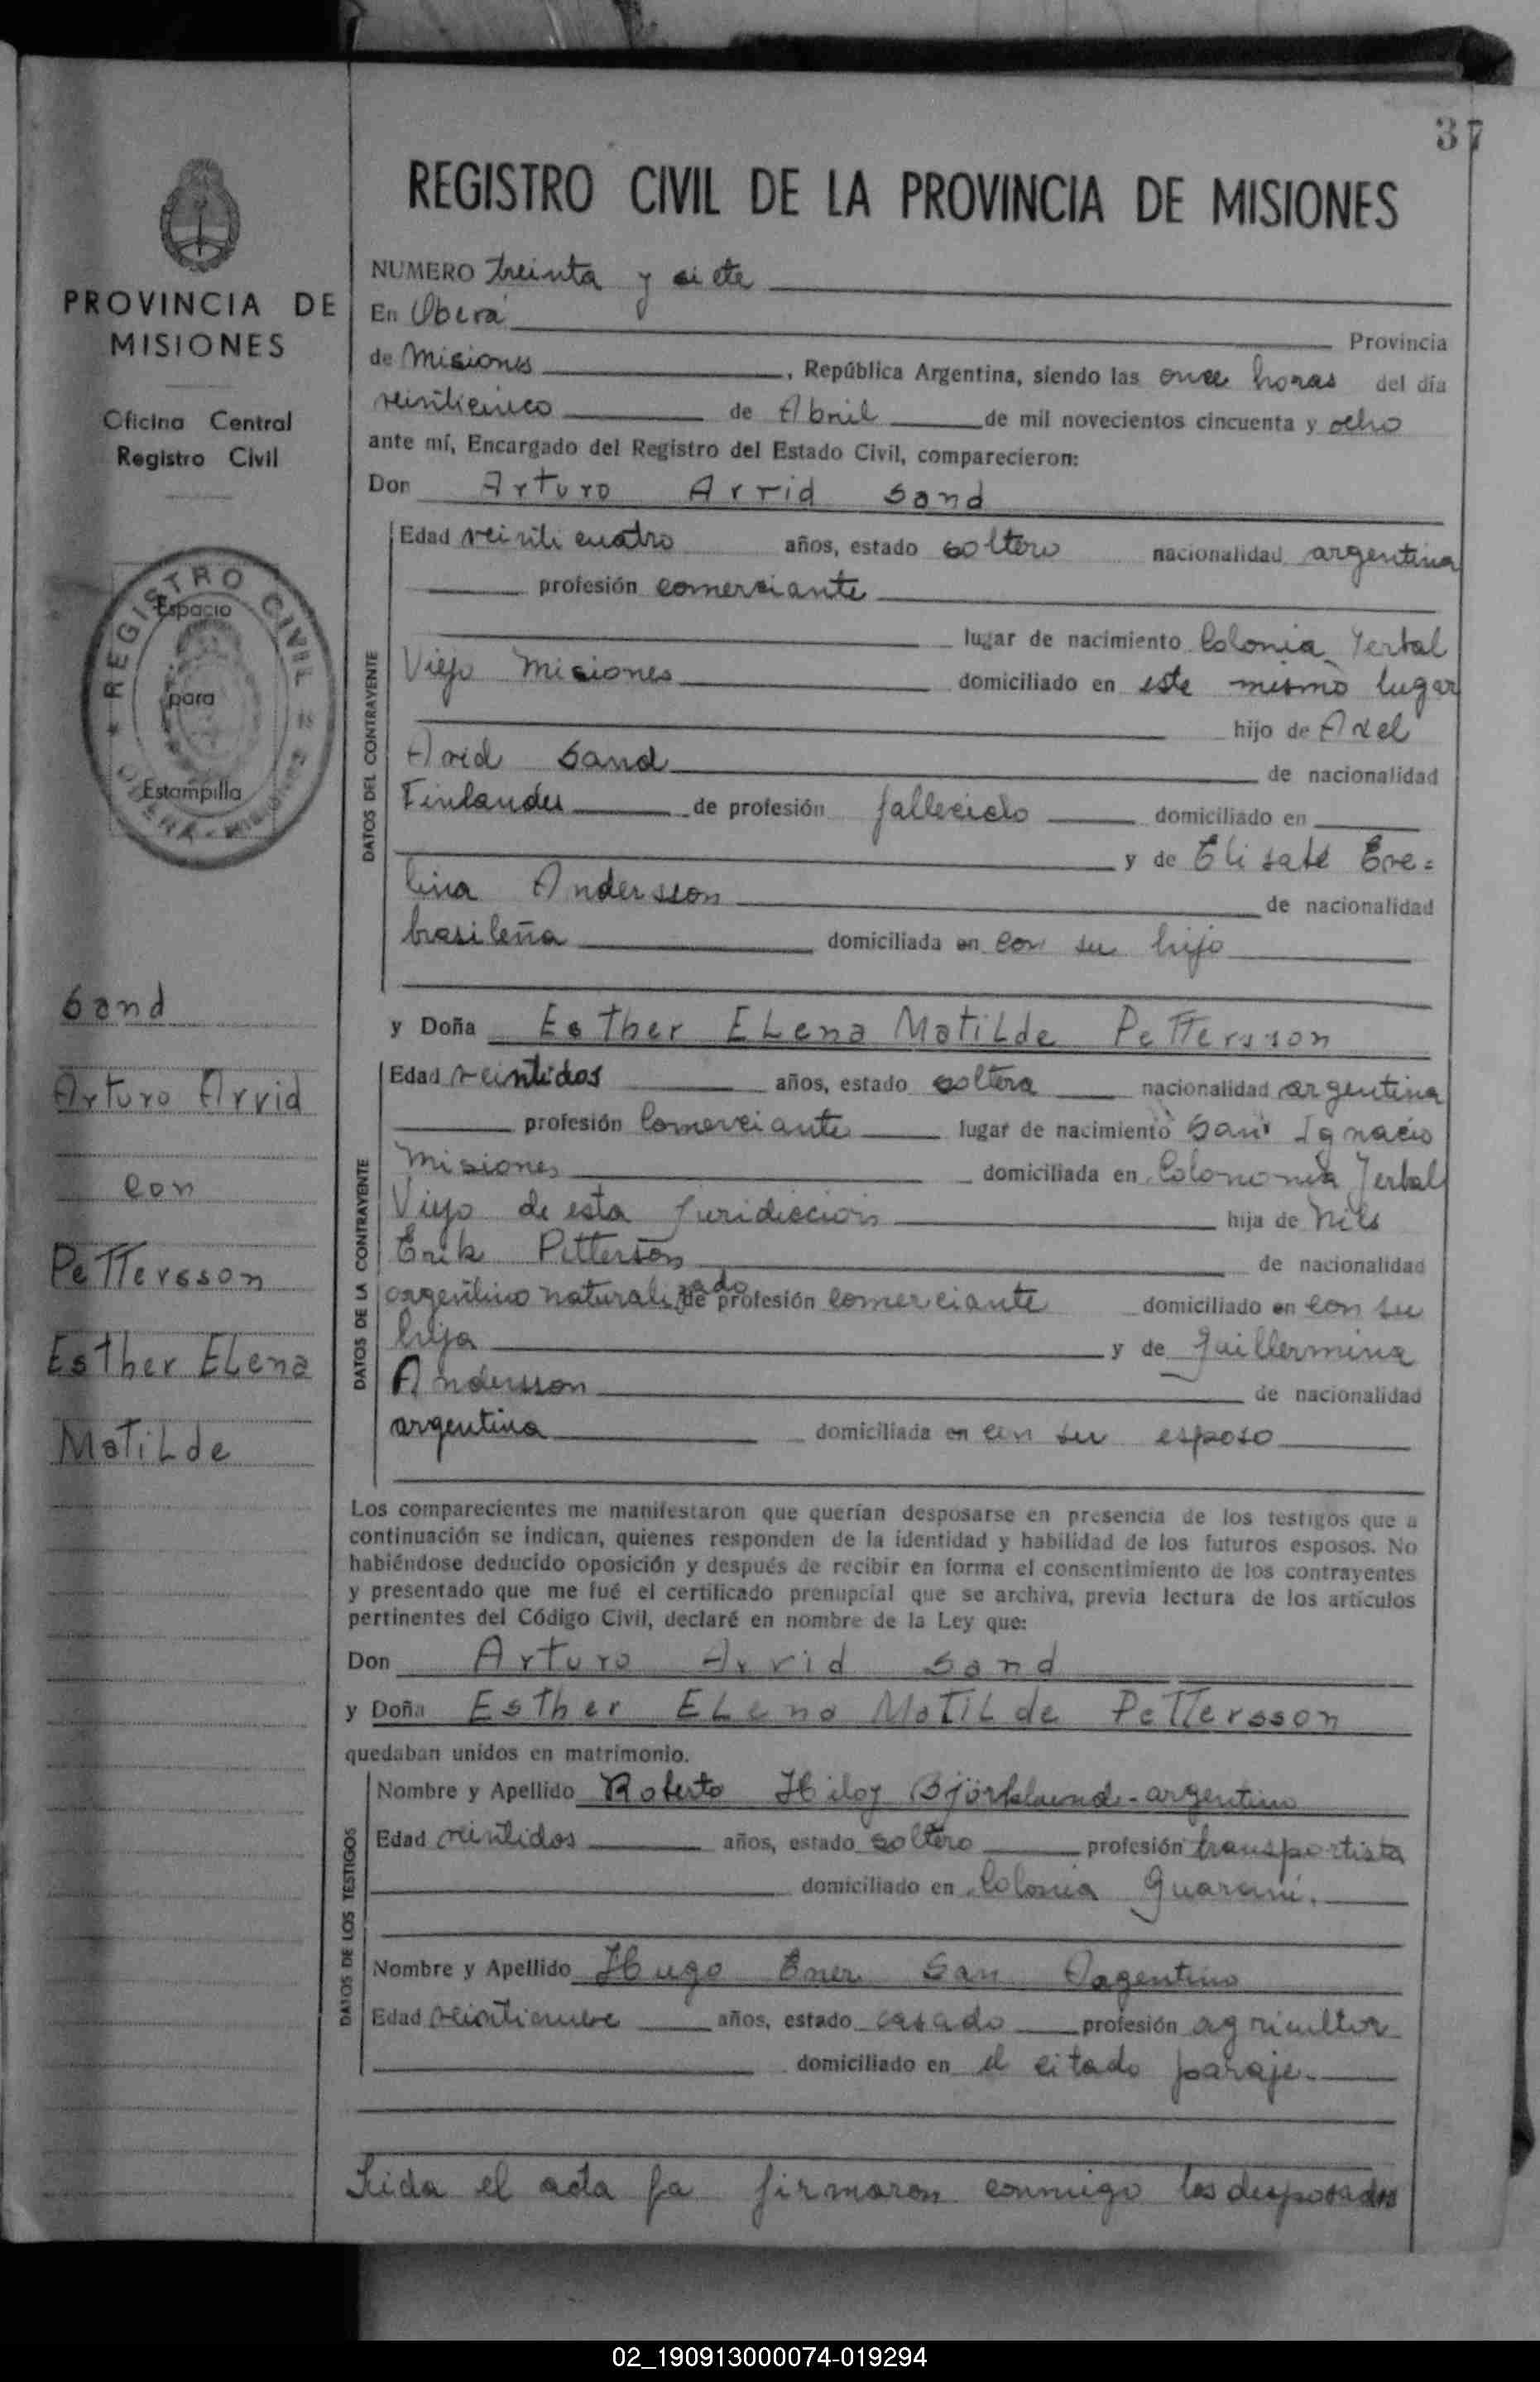 37
REGISTRO CIVIL DE LA PROVINCIA DE MISIONES
PROVINCIA DE
MISIONES
Oficina Central
Registro Civil
REGISTRO CIVIL
Espacio
para
Estampilla
Sand
Arturo Arvid
con
Pettersson
Esther Elena
Matilde
NUMERO treinta y siete
En Oberá Provincia
de Misiones, República Argentina, siendo las once horas del día
veinticinco de Abril de mil novecientos cincuenta y ocho
ante mí, Encargado del Registro del Estado Civil, comparecieron:
Don Arturo Arvid Sand
DATOS DEL CONTRAYENTE
Edad veinticuatro años, estado soltero nacionalidad argentina
profesión comerciante
lugar de nacimiento Colonia Yerbal
Viejo Misiones domiciliado en este mismo lugar
hijo de Axel
Arvid Sand de nacionalidad
Finlandes de profesión fallecido domiciliado en
y de Elisabé Eve=
lina Andersson de nacionalidad
brasileña domiciliada en con su hijo
y Doña Esther Elena Matilde Pettersson
DATOS DE LA CONTRAYENTE
Edad veintidos años, estado soltera nacionalidad argentina
profesión Comerciante lugar de nacimiento San Ignacio
Misiones domiciliada en Colononia Yerbal
Viejo de esta Juridiccion hija de Nils
Erik Petterson de nacionalidad
argentino naturalizado de profesión comerciante domiciliado en con su
hija y de Guillermina
Andersson de nacionalidad
argentina domiciliada en con su esposo
Los comparecientes me manifestaron que querían desposarse en presencia de los testigos que a
continuación se indican, quienes responden de la identidad y habilidad de los futuros esposos. No
habiéndose deducido oposición y después de recibir en forma el consentimiento de los contrayentes
y presentado que me fué el certificado prenupcial que se archiva, previa lectura de los artículos
pertinentes del Código Civil, declaré en nombre de la Ley que:
Don Arturo Arvid Sand
y Doña Esther Elena Matilde Pettersson
quedaban unidos en matrimonio.
DATOS DE LOS TESTIGOS
Nombre y Apellido Roberto Björklund - argentino
Edad veintidos años, estado soltero profesión transportista
domiciliado en Colonia Guarani.
Nombre y Apellido Hugo San Argentino
Edad años, estado casado profesión agricultor
domiciliado en el citado paraje.
Leida el acta la firmaron conmigo los desposados
02_190913000074-019294